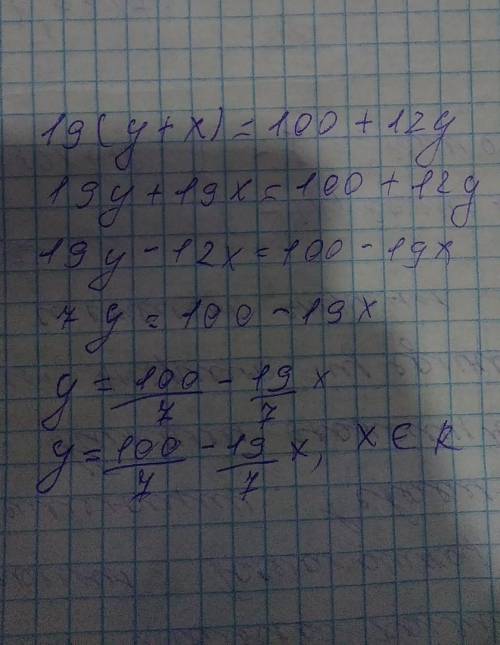 19(y+x)=100+12y
19y+19x=100+12y
19y-12x=100-19x
7y=100-19x
y=100/7-19/7x
y=100/7-19/7x, x∈R